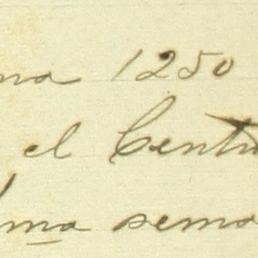 na 1250
el Centr
ma sema